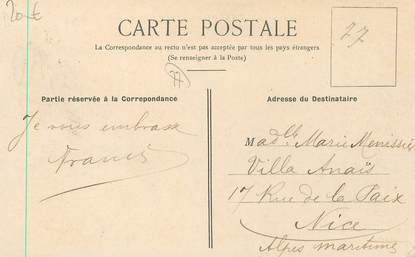 20 €
CARTE POSTALE
La Correspondance au recto n'est pas acceptée par tous les pays étrangers
(Se renseigner à la Poste)
77
Partie réservée à la Correpondance
Adresse du Destinataire
Je vous embrasse
Francis
Madlle Marie Menissier
Villa Anaïs
17 Rue de la Paix
Nice
Alpes maritimes